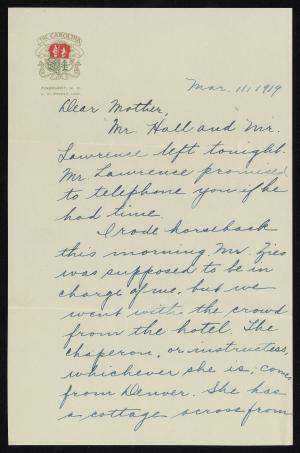 THE CAROLINA
PINEHURST, N. C.
Mar. 11, 1919
Dear Mother,
Mr. Hall and Mr.
Lawrence left tonight.
Mr. Lawrence promised
to telephone you if he
had time.
I rode horseback
this morning. Mr.
was supposed to be in
charge of me, but we
went with the crowd
from the hotel. The
chaperon, or instructess,
whichever she is, comes
from Denver. She has
a cottage across from